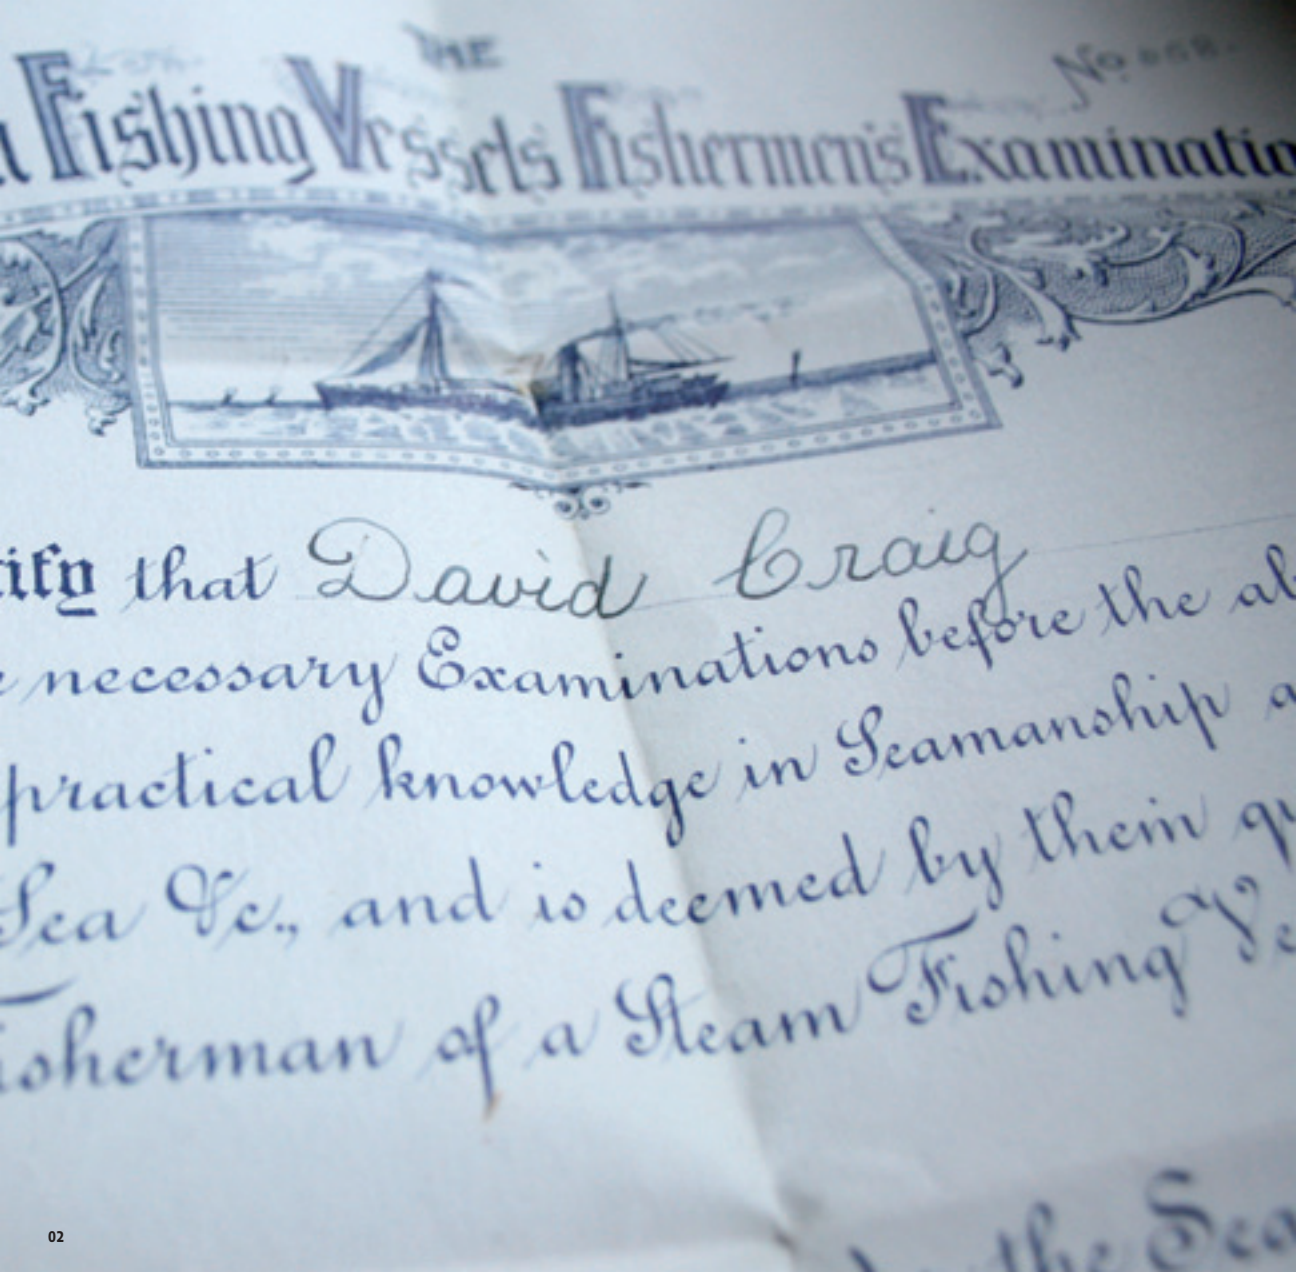 THE
No 868.
Fishing Vessels Fishermen's Examinatio
tify that David Craig
necessary Examinations before the ab
practical knowledge in Seamanship a
Sea &c., and is deemed by them qu
isherman of a Steam Fishing Ve
the Sea
02